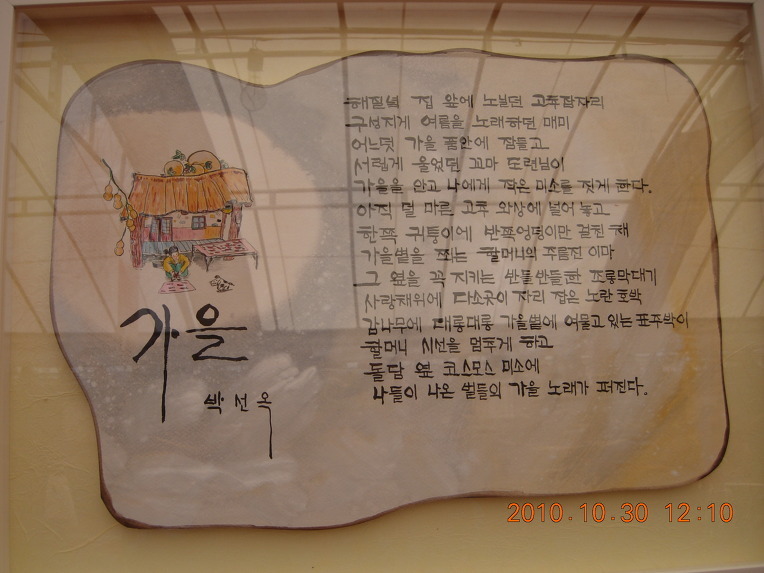 가을
박선옥
해질녘 집 앞에 노닐던 고추잠자리
구성지게 여름을 노래하던 매미
어느덧 가을 품안에 잠들고
서럽게 울었던 꼬마 도련님이
가을을 안고 나에게 작은 미소를 짓게 한다.
아직 덜 마른 고추 와상에 널어 놓고
한쪽 귀퉁이에 반쪽엉덩이만 걸친 채
가을볕을 쬐는 할머니의 주름진 이마
그 옆을 꼭 지키는 반들반들한 조롱막대기
사랑채위에 다소곳이 자리 잡은 노란 호박
감나무에 대롱대롱 가을볕에 여물고 있는 표주박이
할머니 시선을 멈추게 하고
돌담 옆 코스모스 미소에
나들이 나온 벌들의 가을 노래가 퍼진다.
2010.10.30 12:10